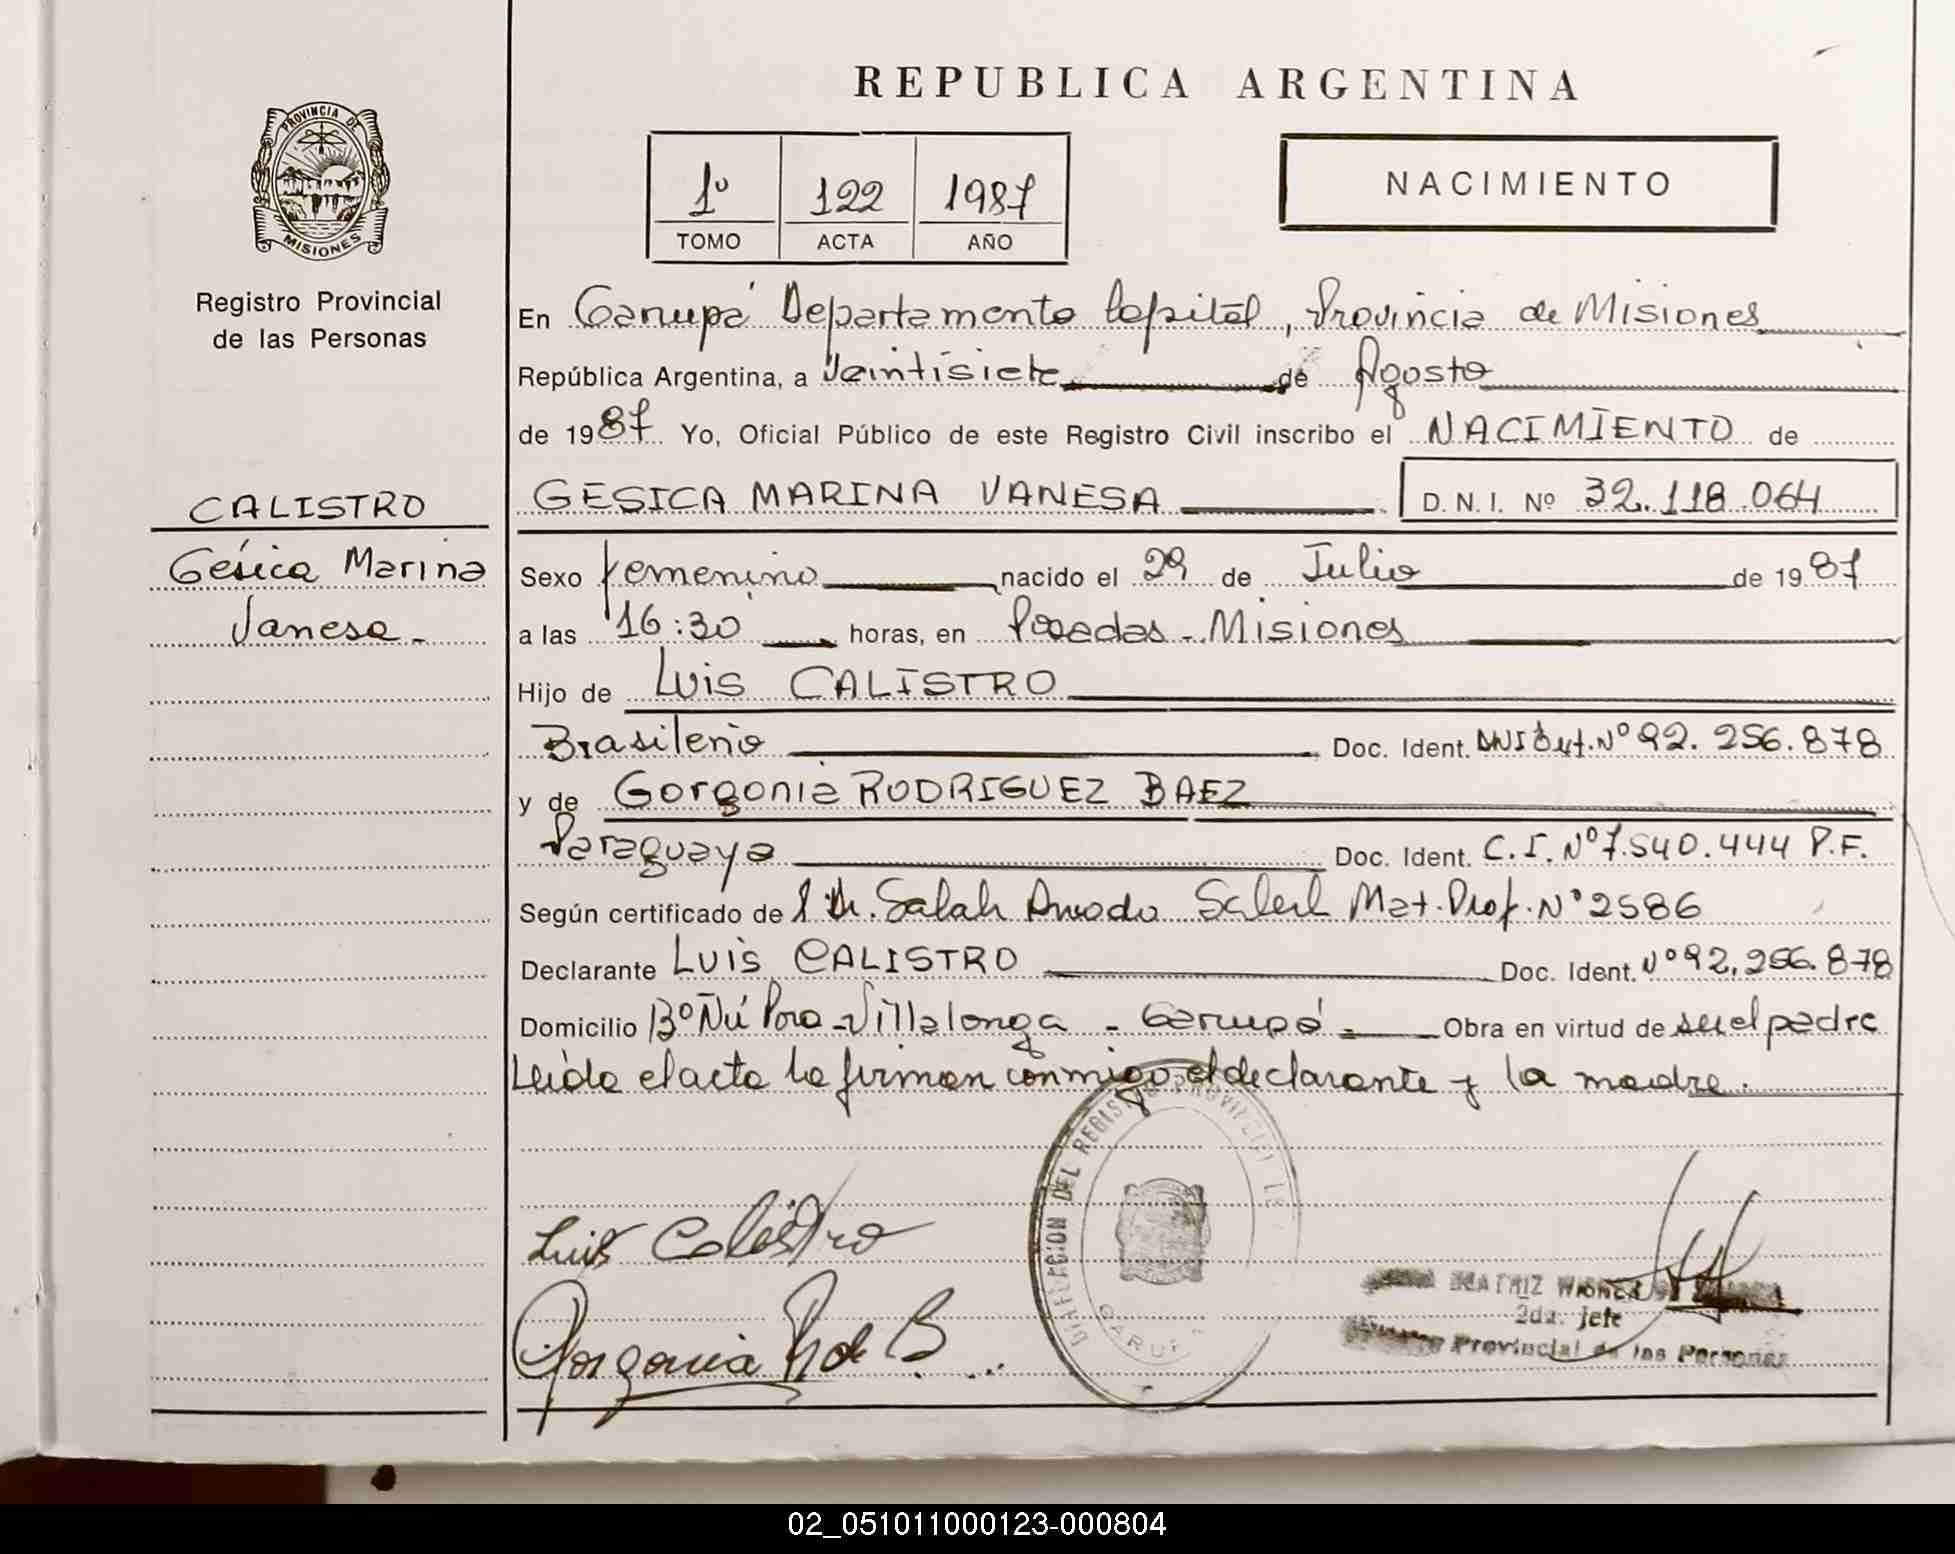 REPUBLICA ARGENTINA
PROVINCIA DE
MISIONES
Registro Provincial
de las Personas
1º 122 1987
TOMO ACTA AÑO
NACIMIENTO
En Garupá Departamento Capital, Provincia de Misiones
República Argentina, a Veintisiete de Agosto
de 1987 Yo, Oficial Público de este Registro Civil inscribo el NACIMIENTO de
CALISTRO
Gésica Marina
Vanesa.-
GESICA MARINA VANESA D. N. I. Nº 32.118.064
Sexo femenino nacido el 29 de Julio de 1987
a las 16:30 horas, en Posadas - Misiones
Hijo de Luis CALISTRO
Brasileño Doc. Ident. DNI Ext. Nº 92.256.878
y de Gorgonia RODRIGUEZ BAEZ
Paraguaya Doc. Ident. C.I. Nº 7.540.444 P.F.
Según certificado de Dr. Salah Amado Mat. Prof. Nº 2586
Declarante Luis CALISTRO Doc. Ident. Nº 92.256.878
Domicilio Bº Ñú Pora - Villalonga - Garupá - Obra en virtud de ser el padre
Leída el acta la firman conmigo el declarante y la madre.
Luis Calistro
Gorgonia R de B
DEL REGISTRO PROVINCIAL
BEATRIZ
2da. Jefe
Provincial de las Personas
02_051011000123-000804